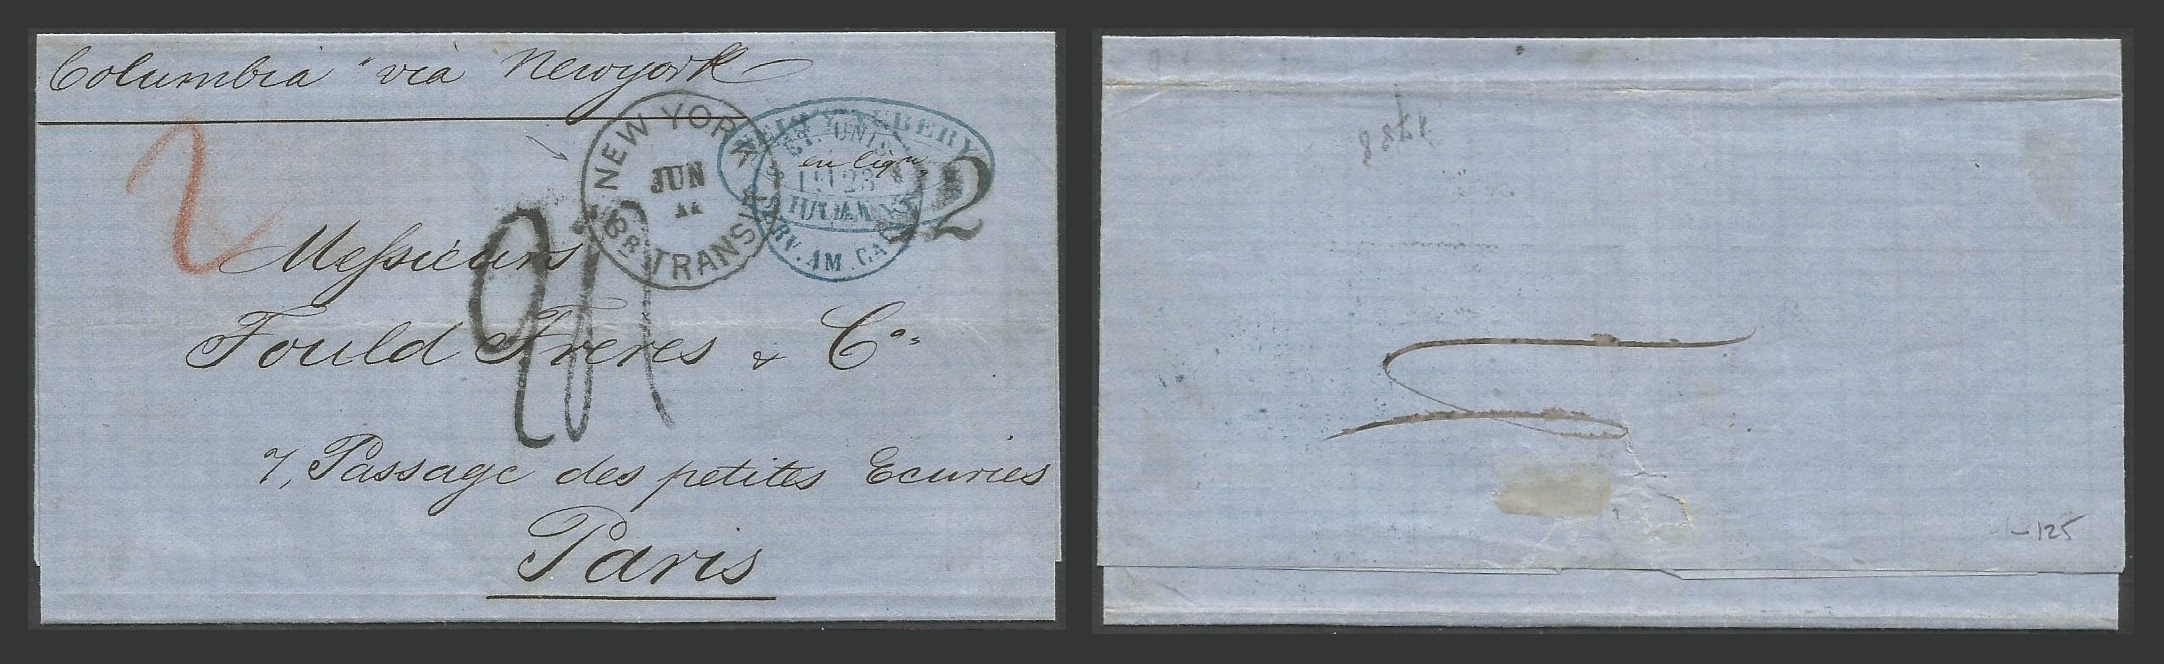 Columbia "via Newyork
2
NEW YORK
JUN
11
BR. TRANSIT
ET. UNIS
SERV. AM. CALAIS
2
Messieurs
Fould Freres & Co.
7, Passage des petites Ecuries
Paris
125